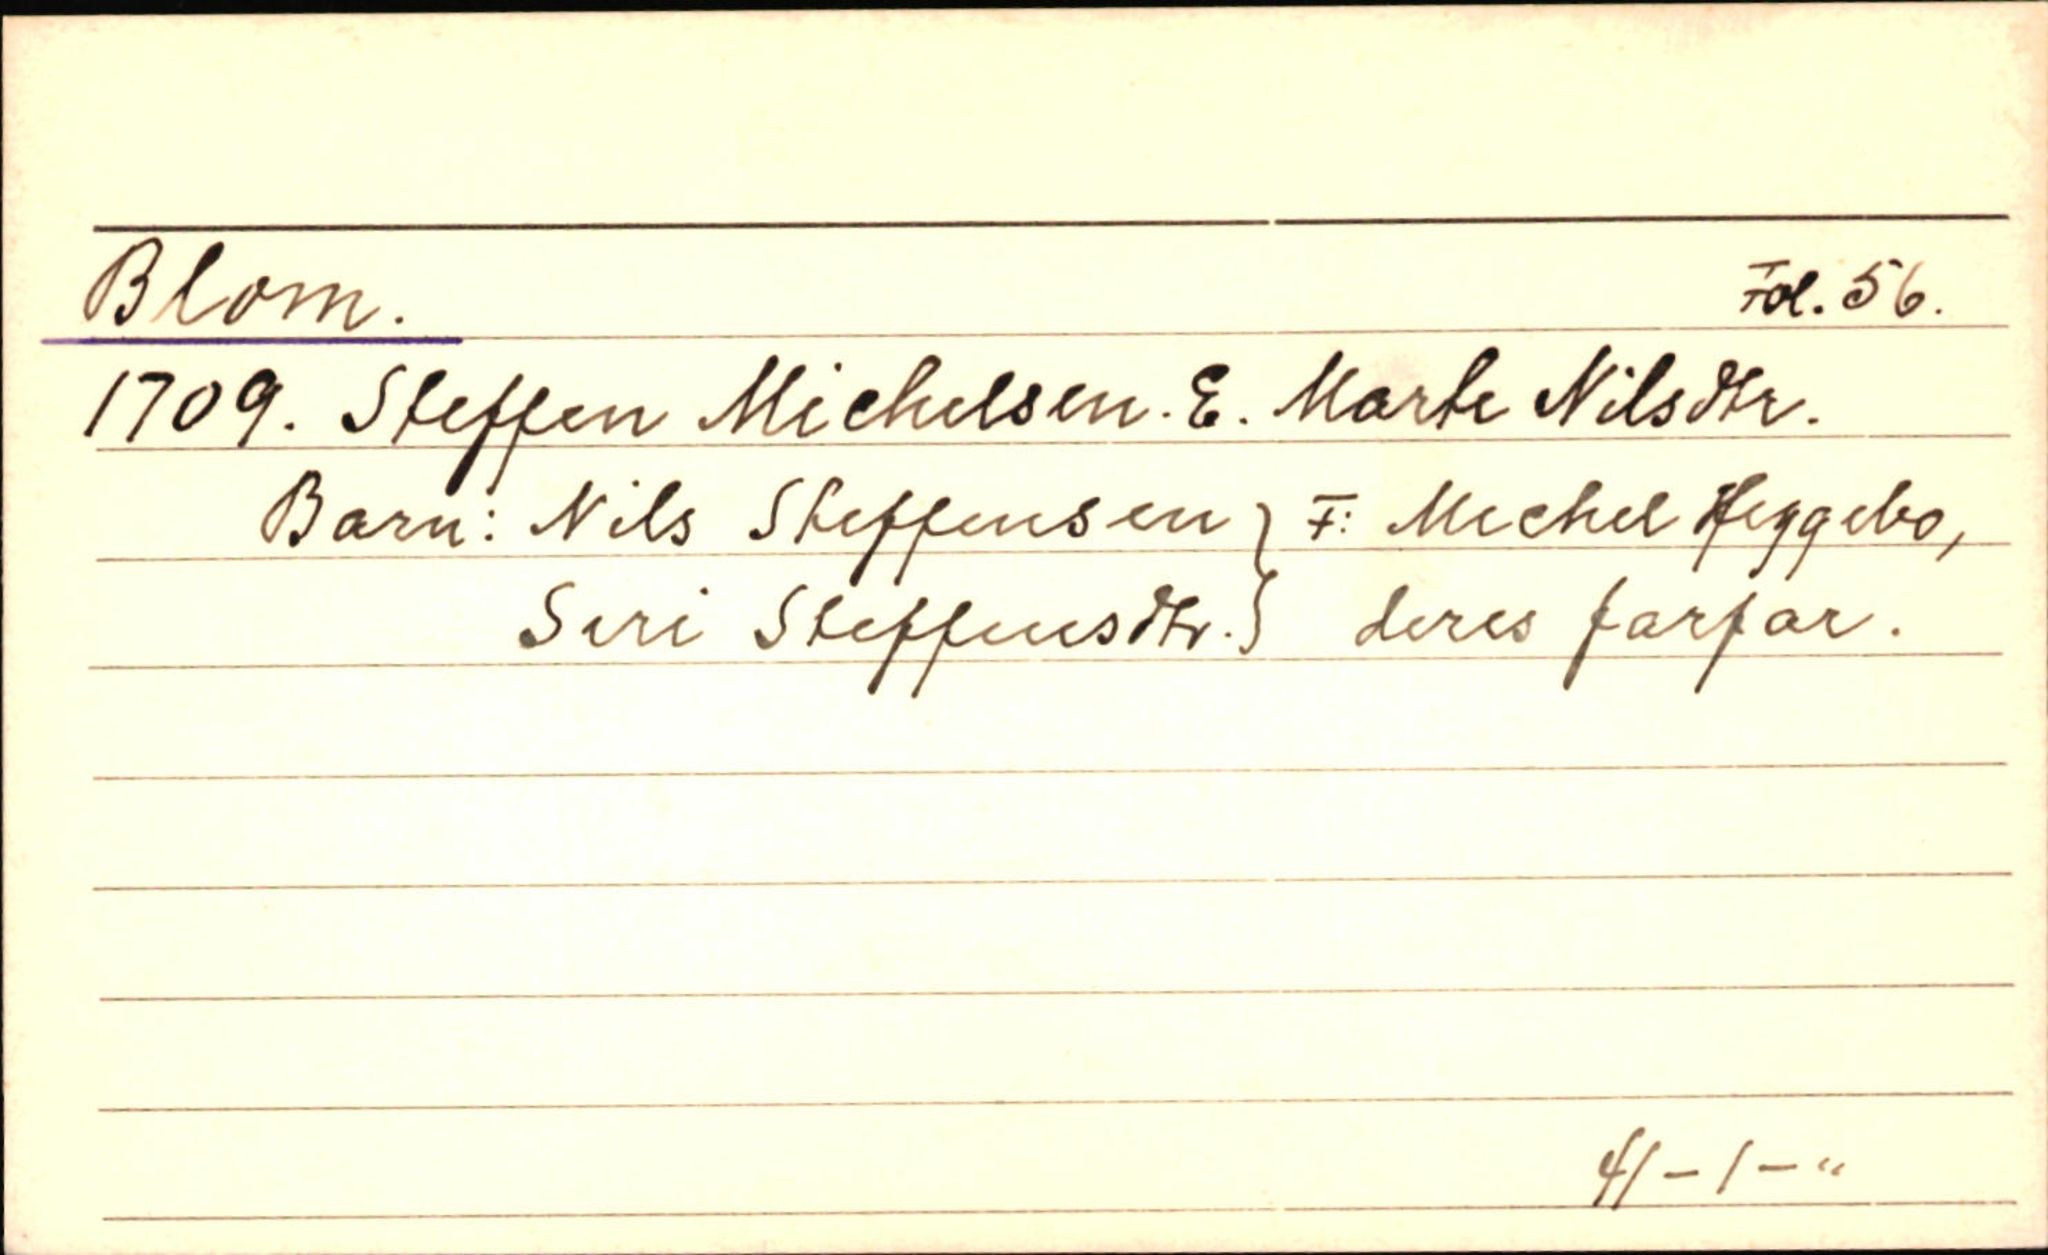 Blom. Fol. 56.
1709. Steffen Michelsen. E. Marte Nilsdtr.
Barn: Nils Steffensen } F: Michel Heggebo,
Siri Steffensdtr. } deres farfar.
41-1-"